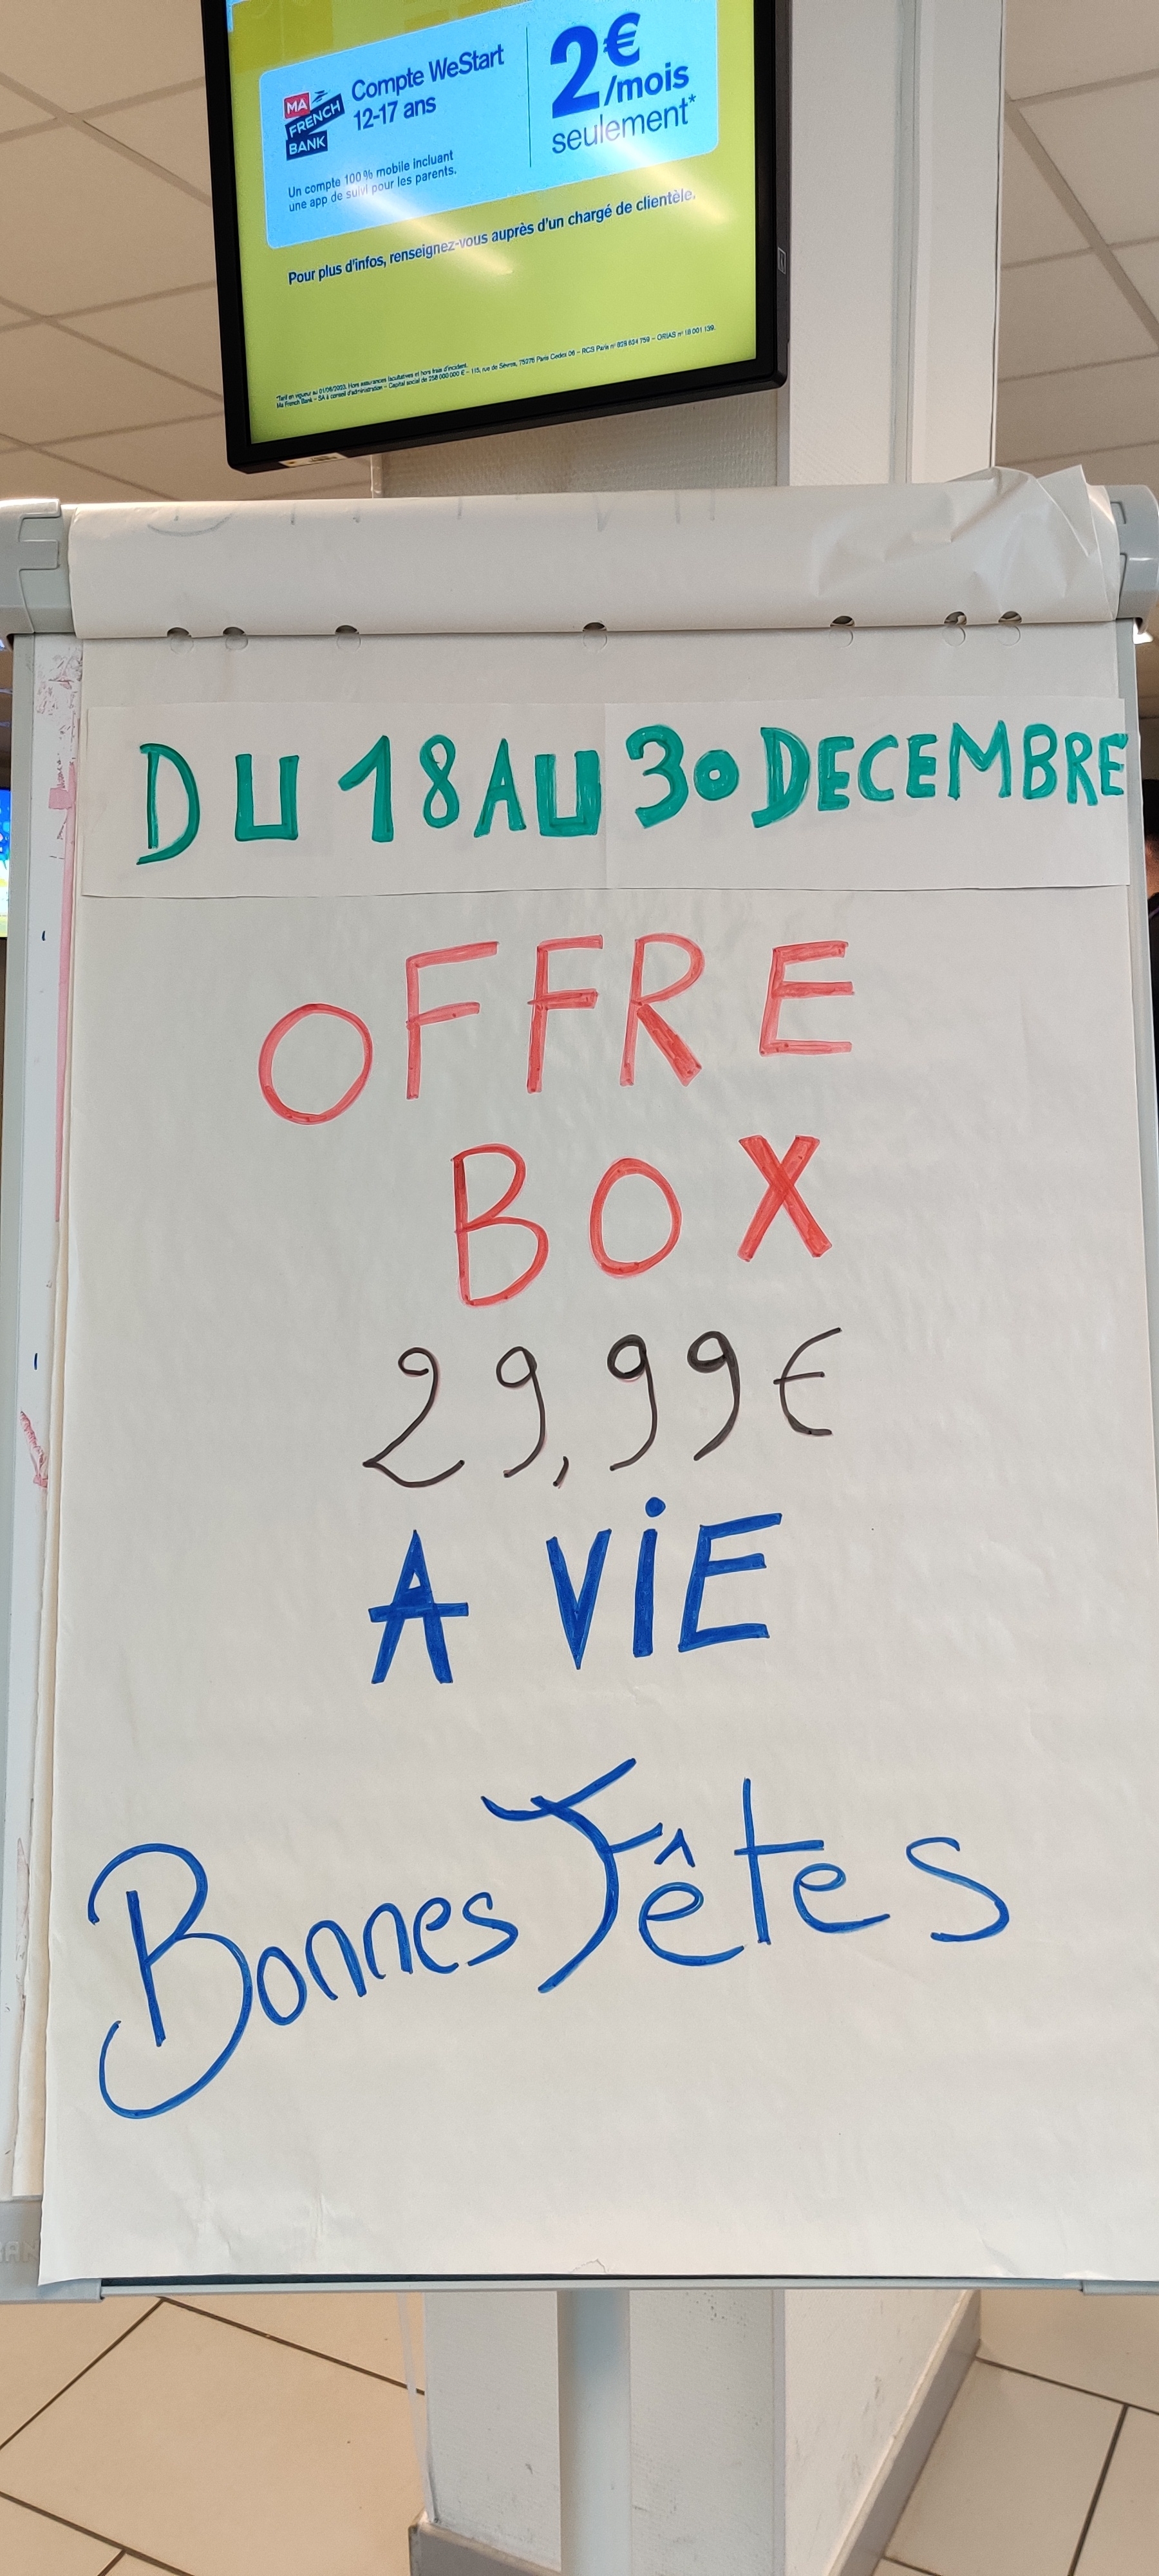 MA
FRENCH
BANK
Compte WeStart
12-17 ans
Un compte 100% mobile incluant
une app de suivi pour les parents.
2€
/mois
seulement*
Pour plus d'infos, renseignez-vous auprès d'un chargé de clientèle.
*Tarif en vigueur au 01/06/2023. Hors assurances facultatives et hors frais d'incident.
Ma French Bank – SA à conseil d'administration – Capital social de 258 000 000 € – 115, rue de Sèvres, 75275 Paris Cedex 06 – RCS Paris n° 828 634 759 – ORIAS n° 18 001 139.
DU 18 AU 30 DECEMBRE
OFFRE
BOX
29,99€
A ViE
Bonnes Fêtes